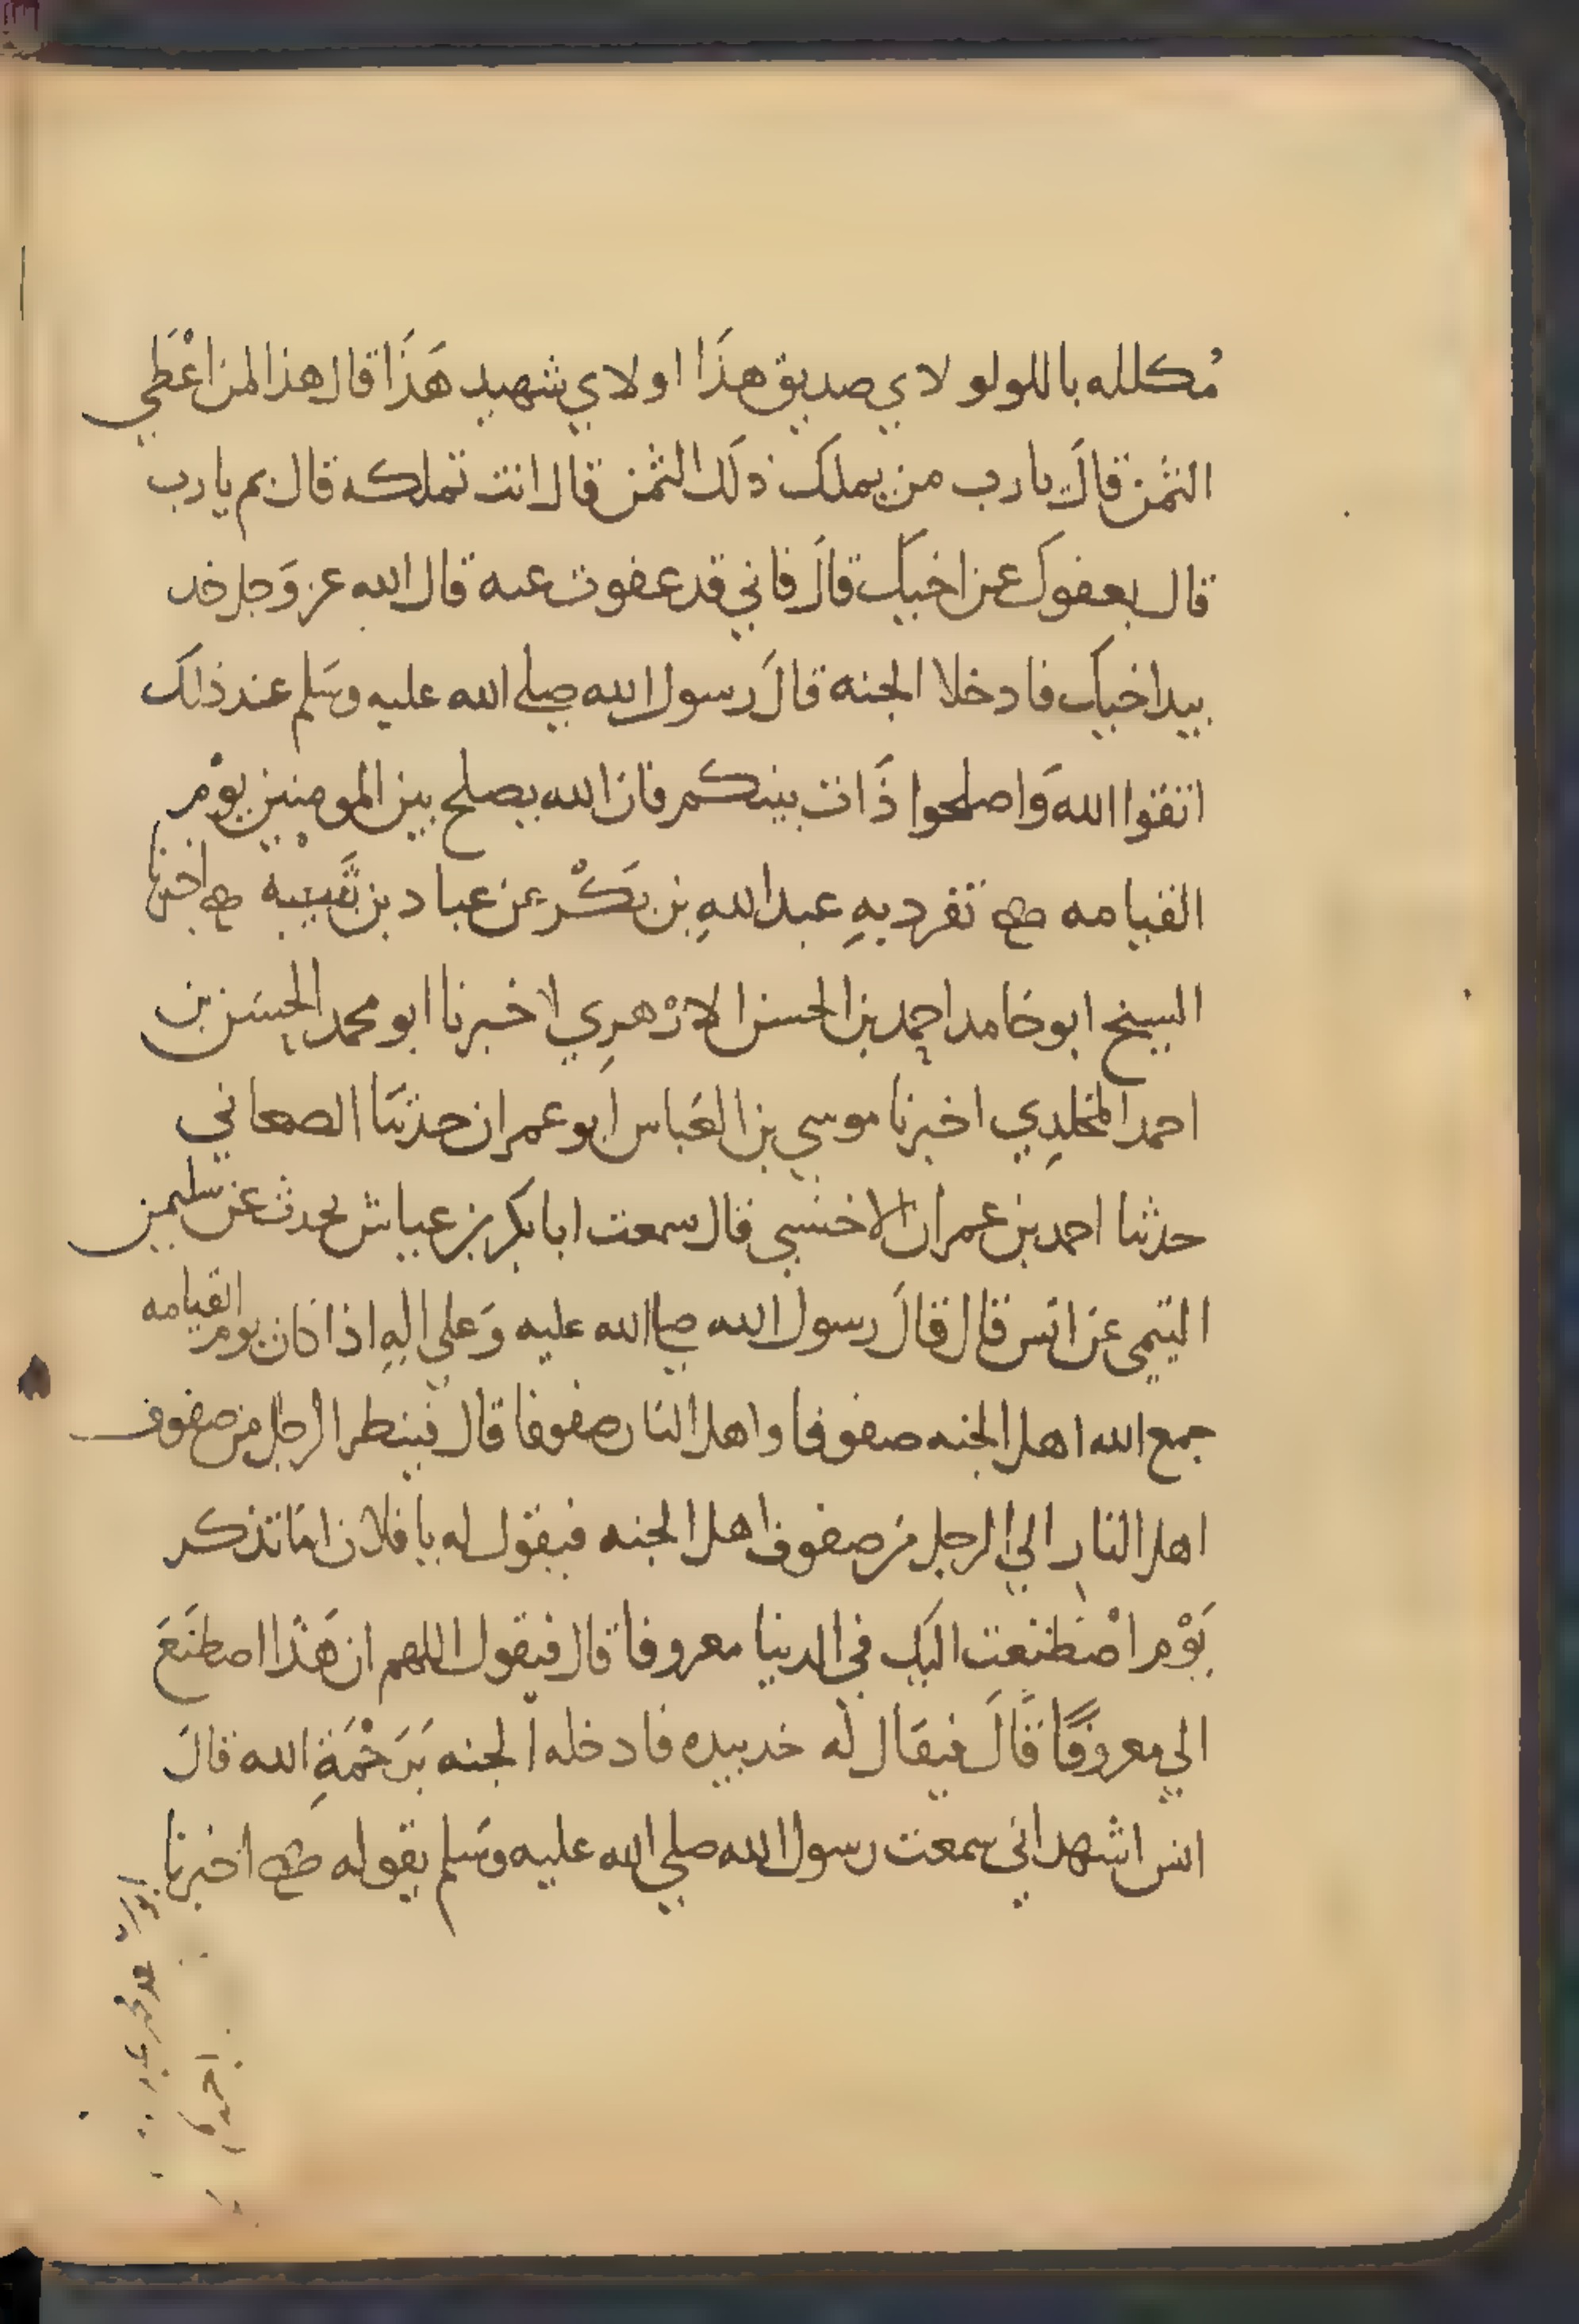 مُكلله باللولو لاي صديق هذَا او لاي شهيد هَذَا قال هذا لمن اعْطَي
الثمن قالَ يا رب من يملك ذلَك الثمن قال انت تملكه قال بم يا رب
قال بعفوك عن اخيك قالَ فاني قد عفوت عنه قال الله عز وَجل خد
بيد اخيك فادخلا الجنه قالَ رسول الله صلي الله عليه وسَلم عند ذلكَ
اتقوا الله وَاصلحوا ذَات بينكم فان الله يصلح بين المومنين يوْم
القيامه تفرد بهِ عبد اللهِ بن بَكْر عن عباد بن شَيْبه اخبرنا
الشيخ ابو حامد احمد بن الحسن الازْهرِي اخبرنا ابو محمد الحسَن بن
احمد المخلدِي اخبرنا موسي بن العَباس ابو عمران حدثنَا الصعاني
حدثنا احمد بن عمران الاخنسي قال سمعت ابا بكر بن عياش يحدث عن سليمن
التيمي عن انس قال قالَ رسول الله صلي الله عليه وَعلي الهِ اذا كان يوم القيامه
جمع الله اهل الجنه صفوفا واهل النار صفوفا قال فينظر الرجل من صفوف
اهل النار الي الرجل من صفوف اهل الجنه فيقول له يا فلان امَا تذكر
يَوْم اصْطنعت اليك في الدنيا معروفا قال فيقول اللهم ان هَذا اصطنَعَ
الي معروفًا قَالَ فيقَال لَه خد بيده فادخله الجنه بَرَحْمَةِ الله قالَ
انس اشهد اني سمعت رسول الله صلي الله عليه وسَلم يقوله اخبرنا